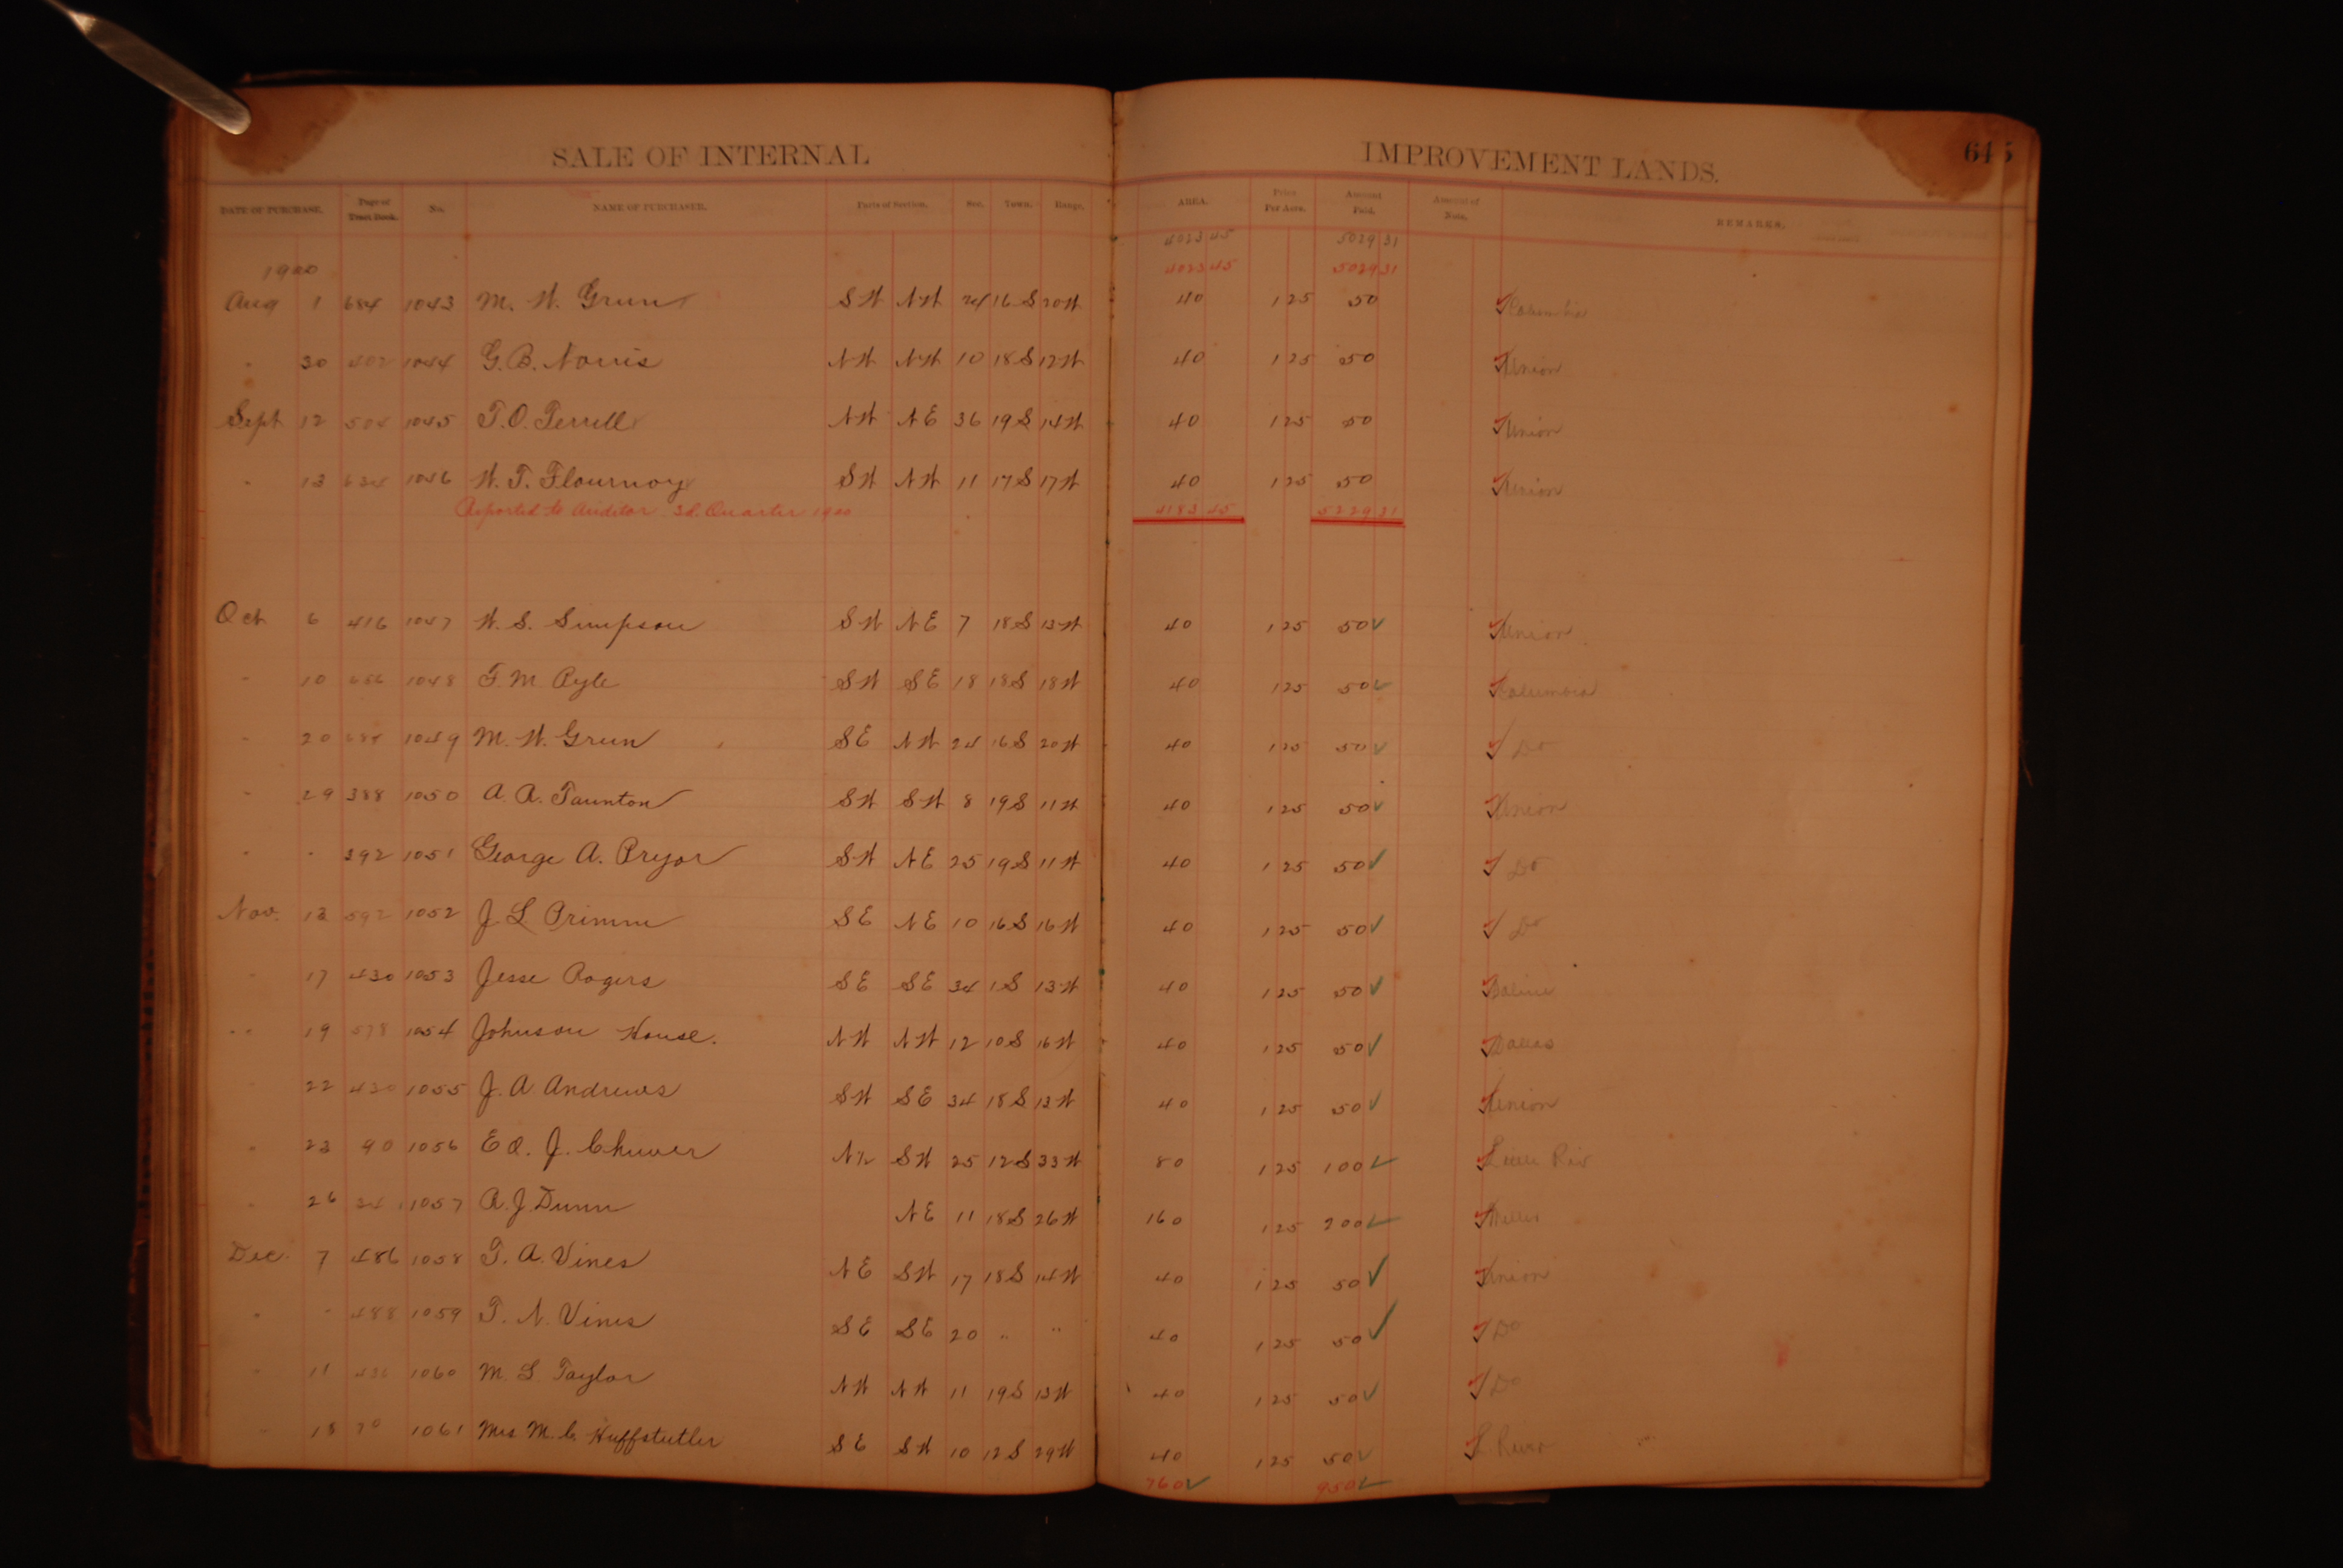 SALE OF INTERNAL IMPROVEMENT LANDS. 645
DATE OF PURCHASE. Page of Tract Book. No. NAME OF PURCHASER. Parts of Section. Sec. Town. Range. AREA. Price Per Acre. Amount Paid. Amount of Note. REMARKS.
4023 45 5029 31
1900 4023 45 5029 31
Aug 1 684 1043 M. W. Green SW NW 24 16S 20W 40 1 25 50 Columbia
" 30 402 1044 G. B. Norris NW NW 10 18S 12W 40 1 25 50 Union
Sept 12 504 1045 T. O. Terrell NW NE 36 19S 14W 40 1 25 50 Union
" 13 634 1046 W. T. Flournoy SW NW 11 17S 17W 40 1 25 50 Union
Reported to Auditor 3d. Quarter 1900 4183 45 5229 31
Oct 6 416 1047 W. S. Simpson SW NE 7 18S 13W 40 1 25 50 Union
" 10 656 1048 F. M. Pyle SW SE 18 18S 18W 40 1 25 50 Columbia
" 20 684 1049 M. W. Green SE NW 24 16S 20W 40 1 25 50 Do
" 29 388 1050 A. A. Taunton SW SW 8 19S 11W 40 1 25 50 Union
" " 392 1051 George A. Pryor SW NE 25 19S 11W 40 1 25 50 Do
Nov. 13 592 1052 J. L. Primm SE NE 10 16S 16W 40 1 25 50 Do
" 17 430 1053 Jesse Rogers SE SE 34 1S 13W 40 1 25 50 Saline
" 19 578 1054 Johnson House. NW NW 12 10S 16W 40 1 25 50 Dallas
22 430 1055 J. A. Andrews SW SE 34 18S 13W 40 1 25 50 Union
" 23 90 1056 J. SW 25 12S 33W 80 1 25 100 Little Riv
" 26 1057 A. J. Dunn NE 11 18S 26W 160 1 25 200 Miller
Dec. 7 486 1058 T. A. Vines NE SW 17 18S 14W 40 1 25 50 Union
" " 488 1059 T. N. Vines SE SE 20 " " 40 1 25 50 Do
" 11 436 1060 M. S. Taylor NW NW 11 19S 13W 40 1 25 50 Do
" 18 70 1061 Mrs M. C. Huffstutler SE SW 10 12S 29W 40 1 25 50 L. River
760 950